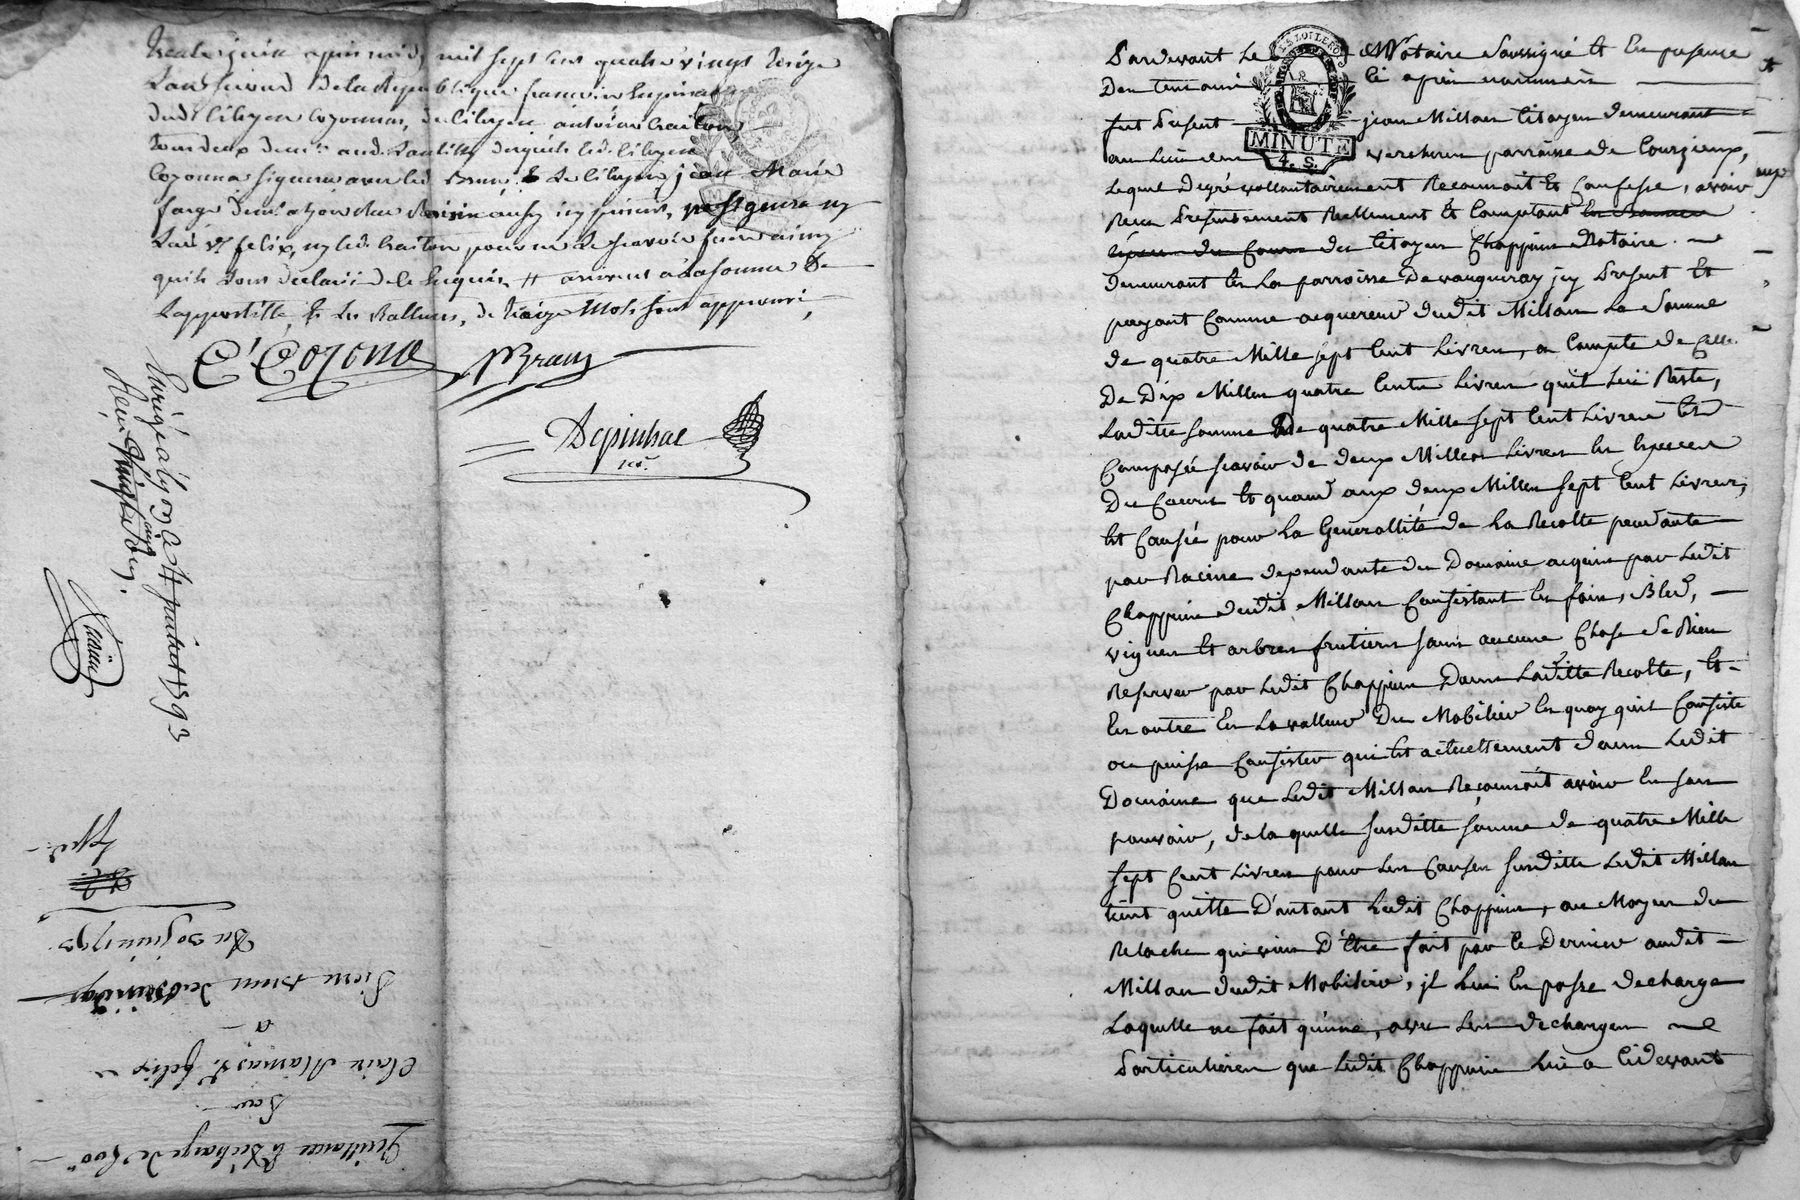 trente juin apres midy mil sept cent quatre vingt treize
L'an second de la Republique francoise en presence
dudt Citoyen Cozonna, du Citoyen antoine
tous deux
Cozonna signera avec led Brun, & le Citoyen jean Marie
farge aussy icy present, ny
Lad. St felix, ny led. pour ne le scavoir faire ainsy
qu'ils l'ont declaré de ce Requis, # a la somme de
L'appostille, & les Ralleures, de treize Mots sont approuvé,
C' Cozona PBrun
Depinhac
nre.
Enrégé a Lyon le 4 juillet 1793
Reçu vingt sols
Quittance & decharge de 600#
Par
Claire St. felix
a
Pierre Brun
Du 30 juin 1793
Exped.
MINUTE
4. S.
Pardevant Le Notaire Soussigné Et En presence
Des temoins ci apres nommés
fut Present jean Millan Citoyen demeurant
au Lieu de verchere parroisse de Courzieux,
Lequel De gré vollontairement Reconnoit Et Confesse, avoir
Recu Presentement Reellement Et Comptant
du Citoyen Chappuis Notaire
demeurant En La parroisse De vaugneray jcy Present Et
payant Comme acquereur dudit Millan La Somme
de quatre Mille sept Cent Livres, a Compte de Celle
De Dix Milles quatre Cents Livres qu'il Lui Reste,
Laditte somme De quatre Mille sept Cent Livres Est
Composée scavoir de deux Milles Livres En Especes
Du Cours Et quand aux deux Milles sept Cent Livres,
Est Causée pour La Generallité de La Recolte pendante
par Racine dependante du Domaine acquis par Ledit
Chappuis dudit Millan Consistant En foin, Bled,
vignes Et arbres fruitiers sans aucune Chose se Rien
Reserver par Ledit Chappuis Dans Laditte Recolte, Et
En outre En La valleur Du Mobilier En quoy qu'il Consiste
ou puisse Consister qui Est actuellement dans Ledit
Domaine que Ledit Millan Reconnoit avoir En son
pouvoir, de laquelle susditte somme de quatre Mille
sept Cent Livres pour Les Causes susditte Ledit Millan
tient quitte D'autant Ledit Chappuis, au Moyen du
Relache qui vien D'être fait par le Dernier audit
Millan dudit Mobilier, jl Lui En passe decharge
Laquelle ne fait qu'une, avec Les decharges
Particulieres que Ledit Chappuis Lui a Cidevant